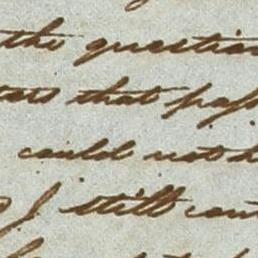 the question
that pass
could not
I still cont